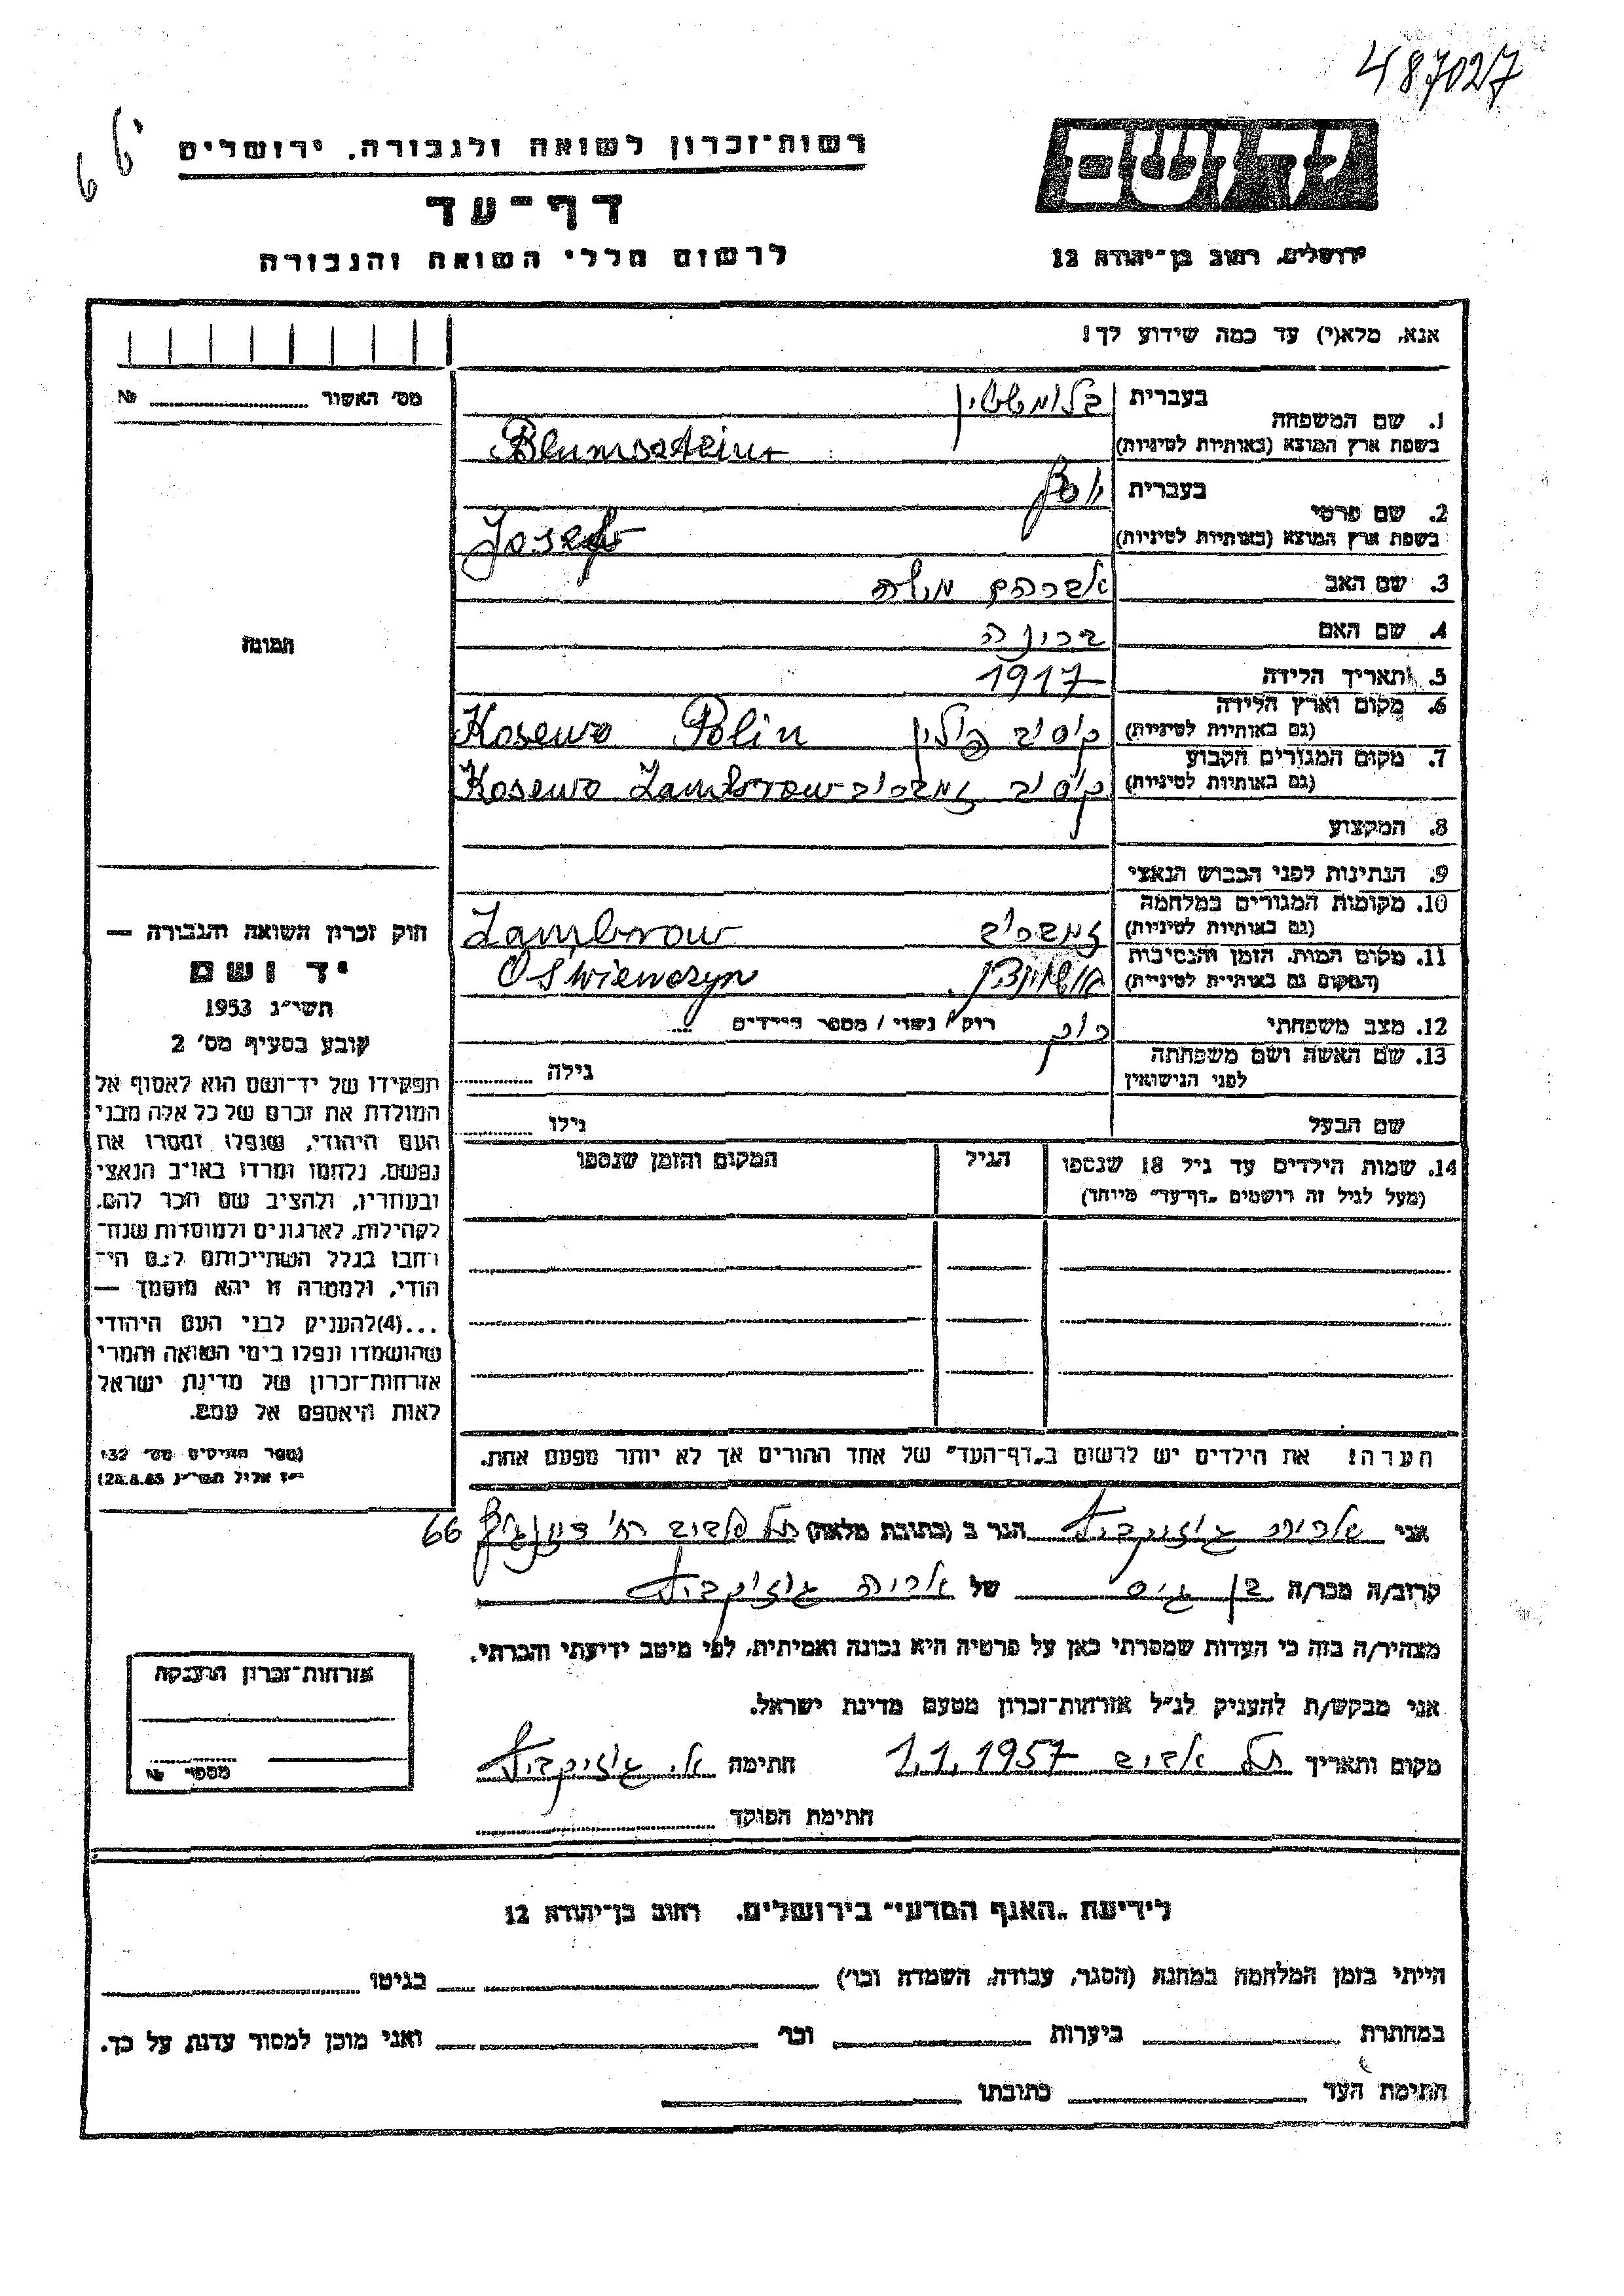 487027
66
יד ושם
רשות-זכרון לשואה ולגבורה, ירושלים
דף-עד
לרשום חללי השואה והגבורה
ירושלים, רחוב בן-יהודה 12
אנא, מלא(י) עד כמה שידוע לך!
מס' האשור № 
1. שם המשפחה
בעברית בלומשטין
בשפת ארץ המוצא (באותיות לטיניות) Blumsztein
2. שם פרטי
בעברית יוסף
בשפת ארץ המוצא (באותיות לטיניות) Josef
3. שם האב אברהם משה
4. שם האם
5. תאריך הלידה 1917
6. מקום וארץ הלידה
(גם באותיות לטיניות) פולין Kosewo Polin
7. מקום המגורים הקבוע
(גם באותיות לטיניות) Kosewo Zambrow
8. המקצוע
9. הנתינות לפני הכבוש הנאצי
10. מקומות המגורים במלחמה
(גם באותיות לטיניות) Zambrow
11. מקום המות, הזמן והנסיבות
(המקום גם באותיות לטיניות) Oswienczyn
12. מצב משפחתי רוק רווק / נשוי / מספר הילדים
13. שם האשה ושם משפחתה
לפני הנישואין גילה
שם הבעל גילו
14. שמות הילדים עד גיל 18 שנספו הגיל המקום והזמן שנספו
(מעל לגיל זה רושמים "דף-עד" מיוחד)
הערה: את הילדים יש לרשום ב"דף-העד" של אחד ההורים אך לא יותר מפעם אחת.
תמונה
חוק זכרון השואה והגבורה —
יד ושם
תשי"ג 1953
קובע בסעיף מס' 2
תפקידו של יד-ושם הוא לאסוף אל
המולדת את זכרם של כל אלה מבני
העם היהודי, שנפלו ומסרו את
נפשם, נלחמו ומרדו באויב הנאצי
ובעוזריו, ולהציב שם וזכר להם,
לקהילות, לארגונים ולמוסדות שנח-
רבו בגלל השתייכותם לעם הי-
הודי, ולמטרה זו יהא מוסמך —
...(4)להעניק לבני העם היהודי
שהושמדו ונפלו בימי השואה והמרי
אזרחות-זכרון של מדינת ישראל
לאות היאספם אל עמם.
(ספר החוקים מס' 132
י"ז אלול תשי"ג 28.8.53)
אני הגר ב (כתובת מלאה) תל אביב רח' דיזנגוף 66
קרוב/ה מכר/ה בן גיס של
מצהיר/ה בזה כי העדות שמסרתי כאן על פרטיה היא נכונה ואמיתית, לפי מיטב ידיעתי והכרתי.
אני מבקש/ת להעניק לנ"ל אזרחות-זכרון מטעם מדינת ישראל.
מקום ותאריך תל אביב 1.1.1957 חתימה
חתימת הפוקד
אזרחות-זכרון הוענקה
מספר №
לידיעת "האגף המדעי" בירושלים, רחוב בן-יהודה 12
הייתי בזמן המלחמה במחנה (הסגר, עבודה, השמדה וכו') בגיטו
במחתרת ביערות וכו' ואני מוכן למסור עדות על כך.
חתימת העד כתובתו